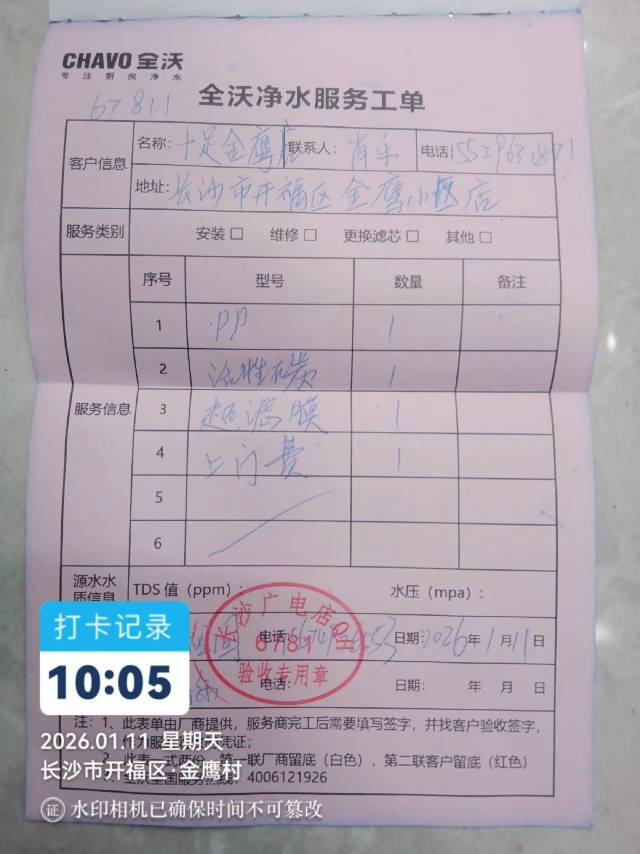 CHAVO 全沃
专注厨房净水
67811
全沃净水服务工单
客户信息
名称: 十足金鹰店 联系人: 电话
地址: 长沙市开福区金鹰小区店
服务类别 安装 □ 维修 □ 更换滤芯 □ 其他 □
服务信息
序号 型号 数量 备注
1 PP 1
2 活性碳 1
3 超滤膜 1
4 上门费 1
5
6
源水水质信息 TDS 值(ppm): 水压(mpa):
电话: 日期: 2026年1月11日
电话: 日期: 年 月 日
长沙广电店
67811
验收专用章
注: 1、此表单由厂商提供，服务商完工后需要填写签字，并找客户验收签字，
凭证;
2、此表一式两份，第一联厂商留底(白色)，第二联客户留底(红色)
4006121926
打卡记录
10:05
2026.01.11 星期天
长沙市开福区·金鹰村
证 水印相机已确保时间不可篡改